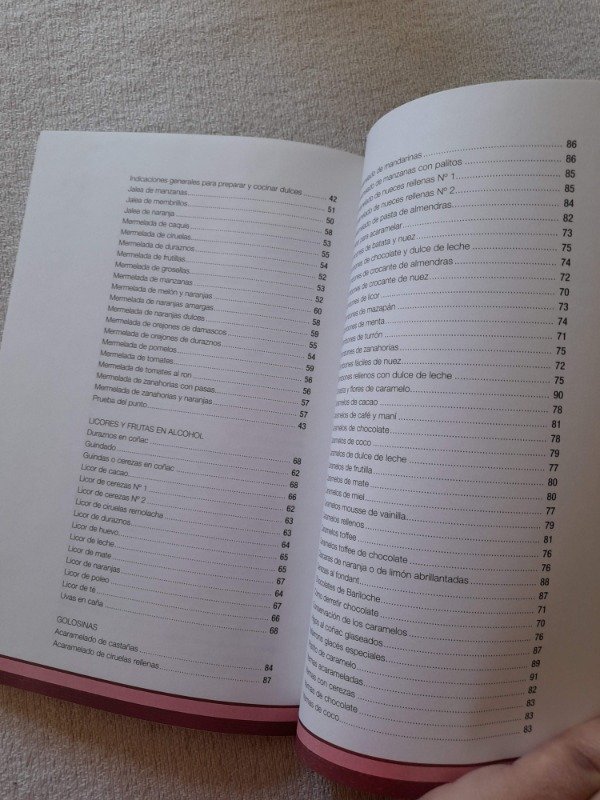 Indicaciones generales para preparar y cocinar dulces 42
Jalea de manzanas 51
Jalea de membrillos 50
Jalee de naranja 58
Mermelada de caquis 53
Mermelada de ciruelas 55
Mermelada de duraznos 54
Mermelada de frutillas 52
Mermelada de grosellas 53
Mermelada de manzanas 52
Mermelada de melón y naranjas 60
Mermelada de naranjas amargas 58
Mermelada de naranjas dulces 59
Mermelada de orejones de damascos 55
Mermelada de orejones de duraznos 54
Mermelada de pomelos 59
Mermelada de tomates 56
Mermelada de tomates al ron 56
Mermelada de zanahorias con pasas 57
Mermelada de zanahorias y naranjas 57
Prueba del punto 43
LICORES Y FRUTAS EN ALCOHOL
Duraznos en coñac 68
Guindado 62
Guindas o cerezas en coñac 68
Licor de cacao 66
Licor de cerezas Nº 1 62
Licor de cerezas Nº 2 63
Licor de ciruelas remolacha 63
Licor de duraznos 64
Licor de huevo 65
Licor de leche 65
Licor de mate 67
Licor de naranjas 64
Licor de poleo 67
Licor de té 66
Uvas en caña 66
GOLOSINAS
Acaramelado de castañas 84
Acaramelado de ciruelas rellenas 87
de mandarinas 86
de manzanas con palitos 86
de nueces rellenas Nº 1 85
de nueces rellenas Nº 2 85
de pasta de almendras 84
para acaramelar 82
de batata y nuez 73
de chocolate y dulce de leche 75
de crocante de almendras 74
de crocante de nuez 72
de licor 70
de mazapán 73
de menta 74
de turrón 71
de zanahorias 75
fáciles de nuez 72
rellenos con dulce de leche 75
y flores de caramelo 90
de cacao 78
de café y maní 81
de chocolate 78
de coco 79
de dulce de leche 77
de frutilla 80
de mate 80
de miel 77
mousse de vainilla 79
rellenos 81
toffee 76
toffee de chocolate 76
de naranja o de limón abrillantadas 88
al fondant 87
de Bariloche 71
derretir chocolate 70
de los caramelos 76
al coñac glaseados 87
glacés especiales 89
de caramelo 91
acarameladas 82
con cerezas 83
de chocolate 83
de coco 83